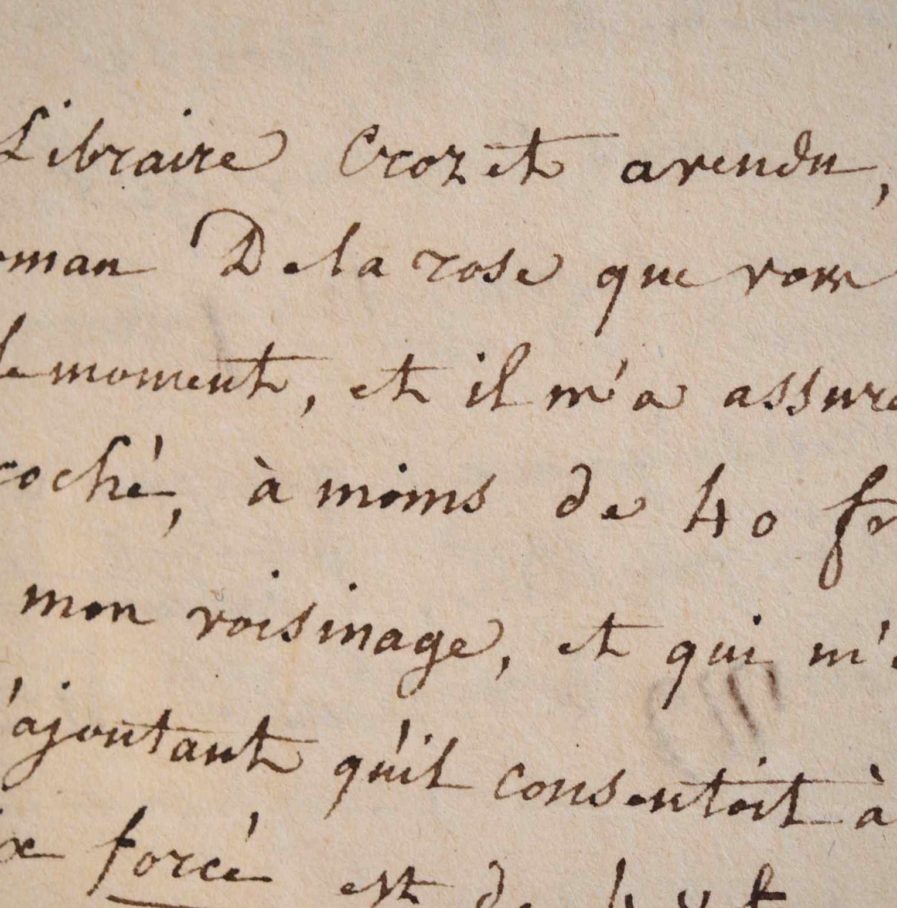 Libraire Crozet a vendu,
oman De la rose que vous
le moment, et il m'a assuré
coché, à moins de 40 fr
mon voisinage, et qui m'a
'ajoutant qu'il consentoit à
ix forcé est de